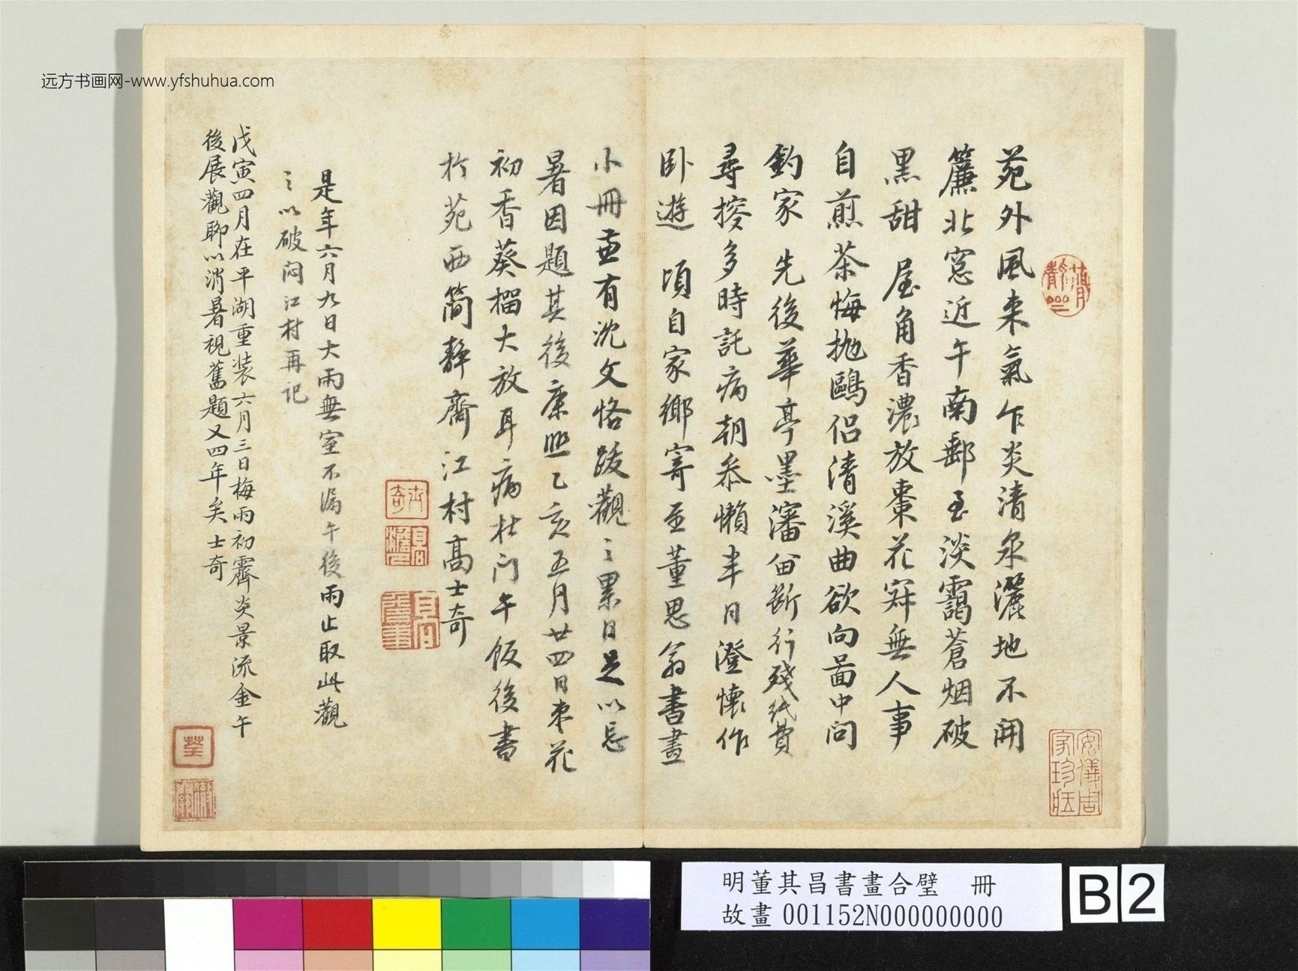 远方书画网-www.yfshuhua.com
苑外風来氣乍炎清泉灑地不開
簾北窓近午南郵至淡靄蒼烟破
黑甜 屋角香濃放棗花穽無人事
自煎茶悔抛鷗侣清溪曲欲向啚中问
釣家 先後華亭墨瀋留斷行殘紙費
尋搜多時託病朝叅懶半日澄懷作
卧遊 頃自家鄉寄至董思翁書畫
小冊并有沈文恪跋觀之累日足以忘
暑因題其後康熙乙亥五月廿四日枣花
初香葵榴大放耳病杜门午饭後書
於苑西簡靜齋江村高士奇
是年六月九日大雨無室不漏午後雨止取此觀
之以破闷江村再记
戊寅四月在平湖重装六月三日梅雨初霽炎景流金午
後展觀聊以消暑視舊題又四年矣士奇
士奇
安儀周家珍藏
明董其昌書畫合璧 冊
故畫 001152N000000000
B 2